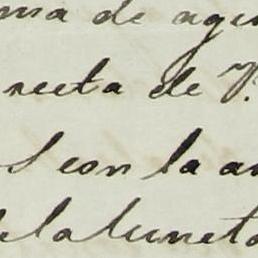 ma de agu
recta de P.
s con la a
de la luneta